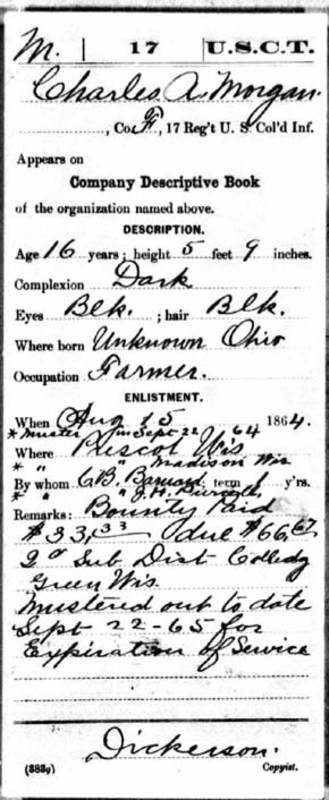 M. | 17 | U.S.C.T.
Charles A. Morgan.
, Co. F, 17 Reg't U. S. Col'd Inf.
Appears on
Company Descriptive Book
of the organization named above.
DESCRIPTION.
Age 16 years; height 5 feet 9 inches.
Complexion Dark
Eyes Blk. ; hair Blk.
Where born Unknown Ohio
Occupation Farmer.
ENLISTMENT.
When Aug 15 1864.
* Muster in Sept 22 64
Where Prescot Wis
* " " Madison Wis
By whom C. B. ; term 1 y'rs.
* " " J. H.
Remarks: Bounty Paid
$33,33 due $66,67
2d Sub Dist
Green Wis
Mustered out to date
Sept 22-65 for
Expiration of Service
Dickerson.
(383g) Copyist.